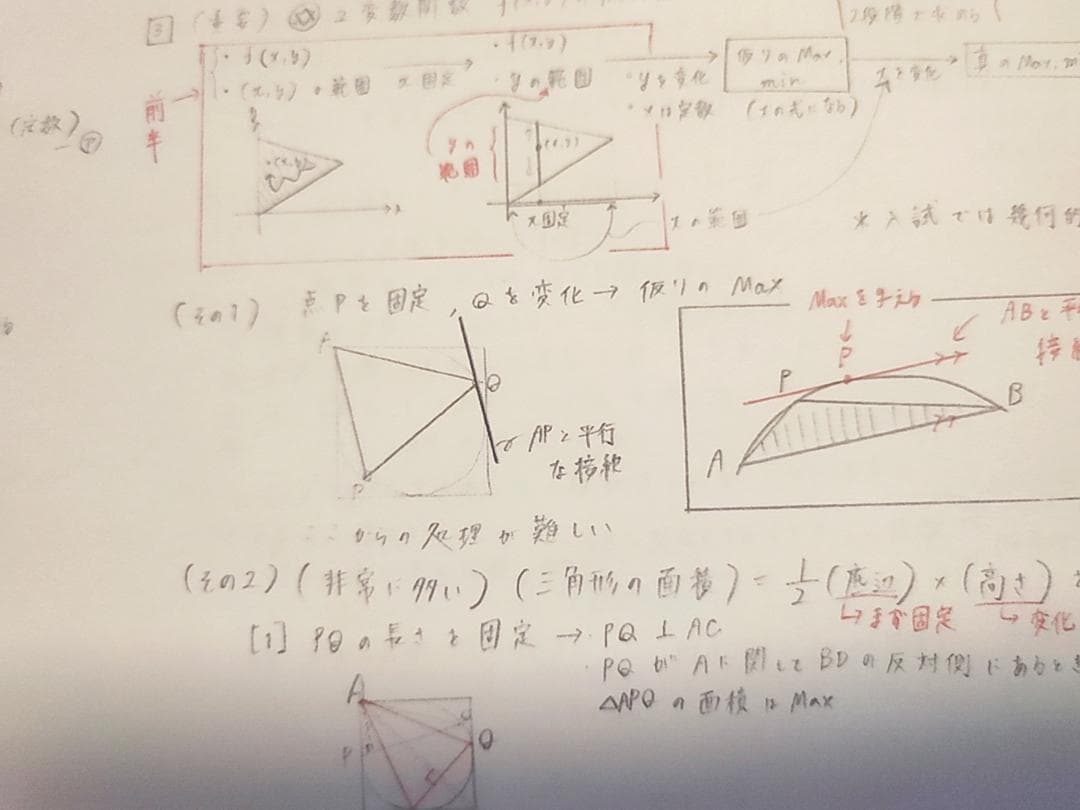 3 (重要) 2変数関数
2段階で求める
・f(x,y)
・(x,y)の範囲 x固定
・f(x,y)
・yの範囲
・yを変化
・xは定数
仮りのMax, min
(xの式になる)
xを変化
真のMax, m
前半
(定数)
y
(x,y)
x
yの範囲
(x,y)
x固定
xの範囲
※入試では幾何的
(その1) 点Pを固定, Qを変化→仮りのMax
A
Q
P
APと平行
な接線
Maxを与える
P
ABと平
接線
P
A
B
からの処理が難しい
(その2) (非常に多い) (三角形の面積) = 1/2 (底辺) × (高さ)
まず固定
変化
[1] PQの長さを固定 → ・PQ⊥AC
・PQがAに関してBDの反対側にあると
△APQの面積はMax
A
P
Q